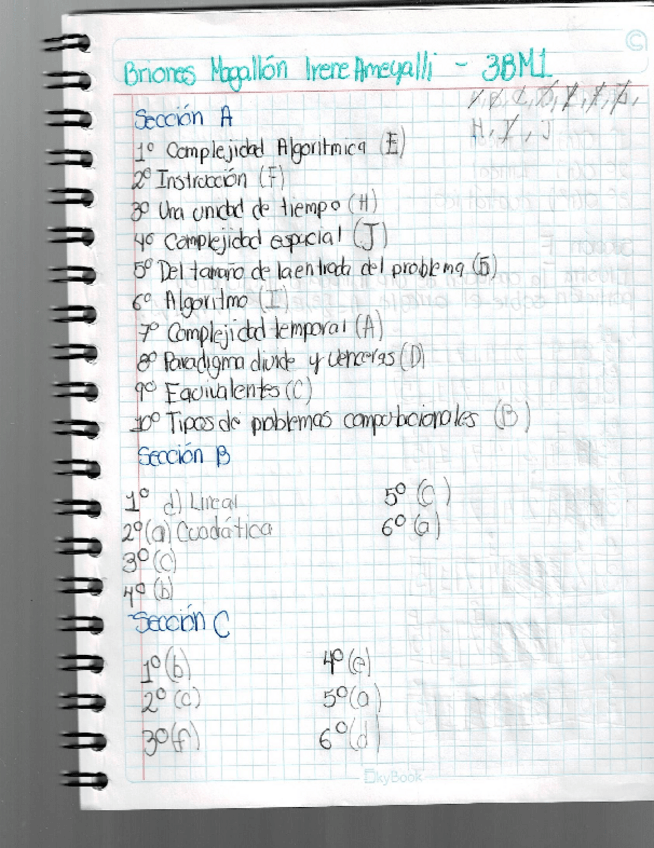 Briones Magallón Irene Ameyalli - 3BM1
H, I, J
Sección A
1º Complejidad Algoritmica (E)
2º Instrucción (F)
3º Una unidad de tiempo (H)
4º Complejidad espacial (J)
5º Del tamaño de la entrada del problema (G)
6º Algoritmo (I)
7º Complejidad temporal (A)
8º Paradigma divide y venceras (D)
9º Equivalentes (C)
10º Tipos de problemas computacionales (B)
Sección B
1º d) Lineal
2º (a) Cuadática
3º (c)
4º (b)
5º (c)
6º (a)
Sección C
1º (b)
2º (c)
3º (f)
4º (e)
5º (a)
6º (d)
SkyBook